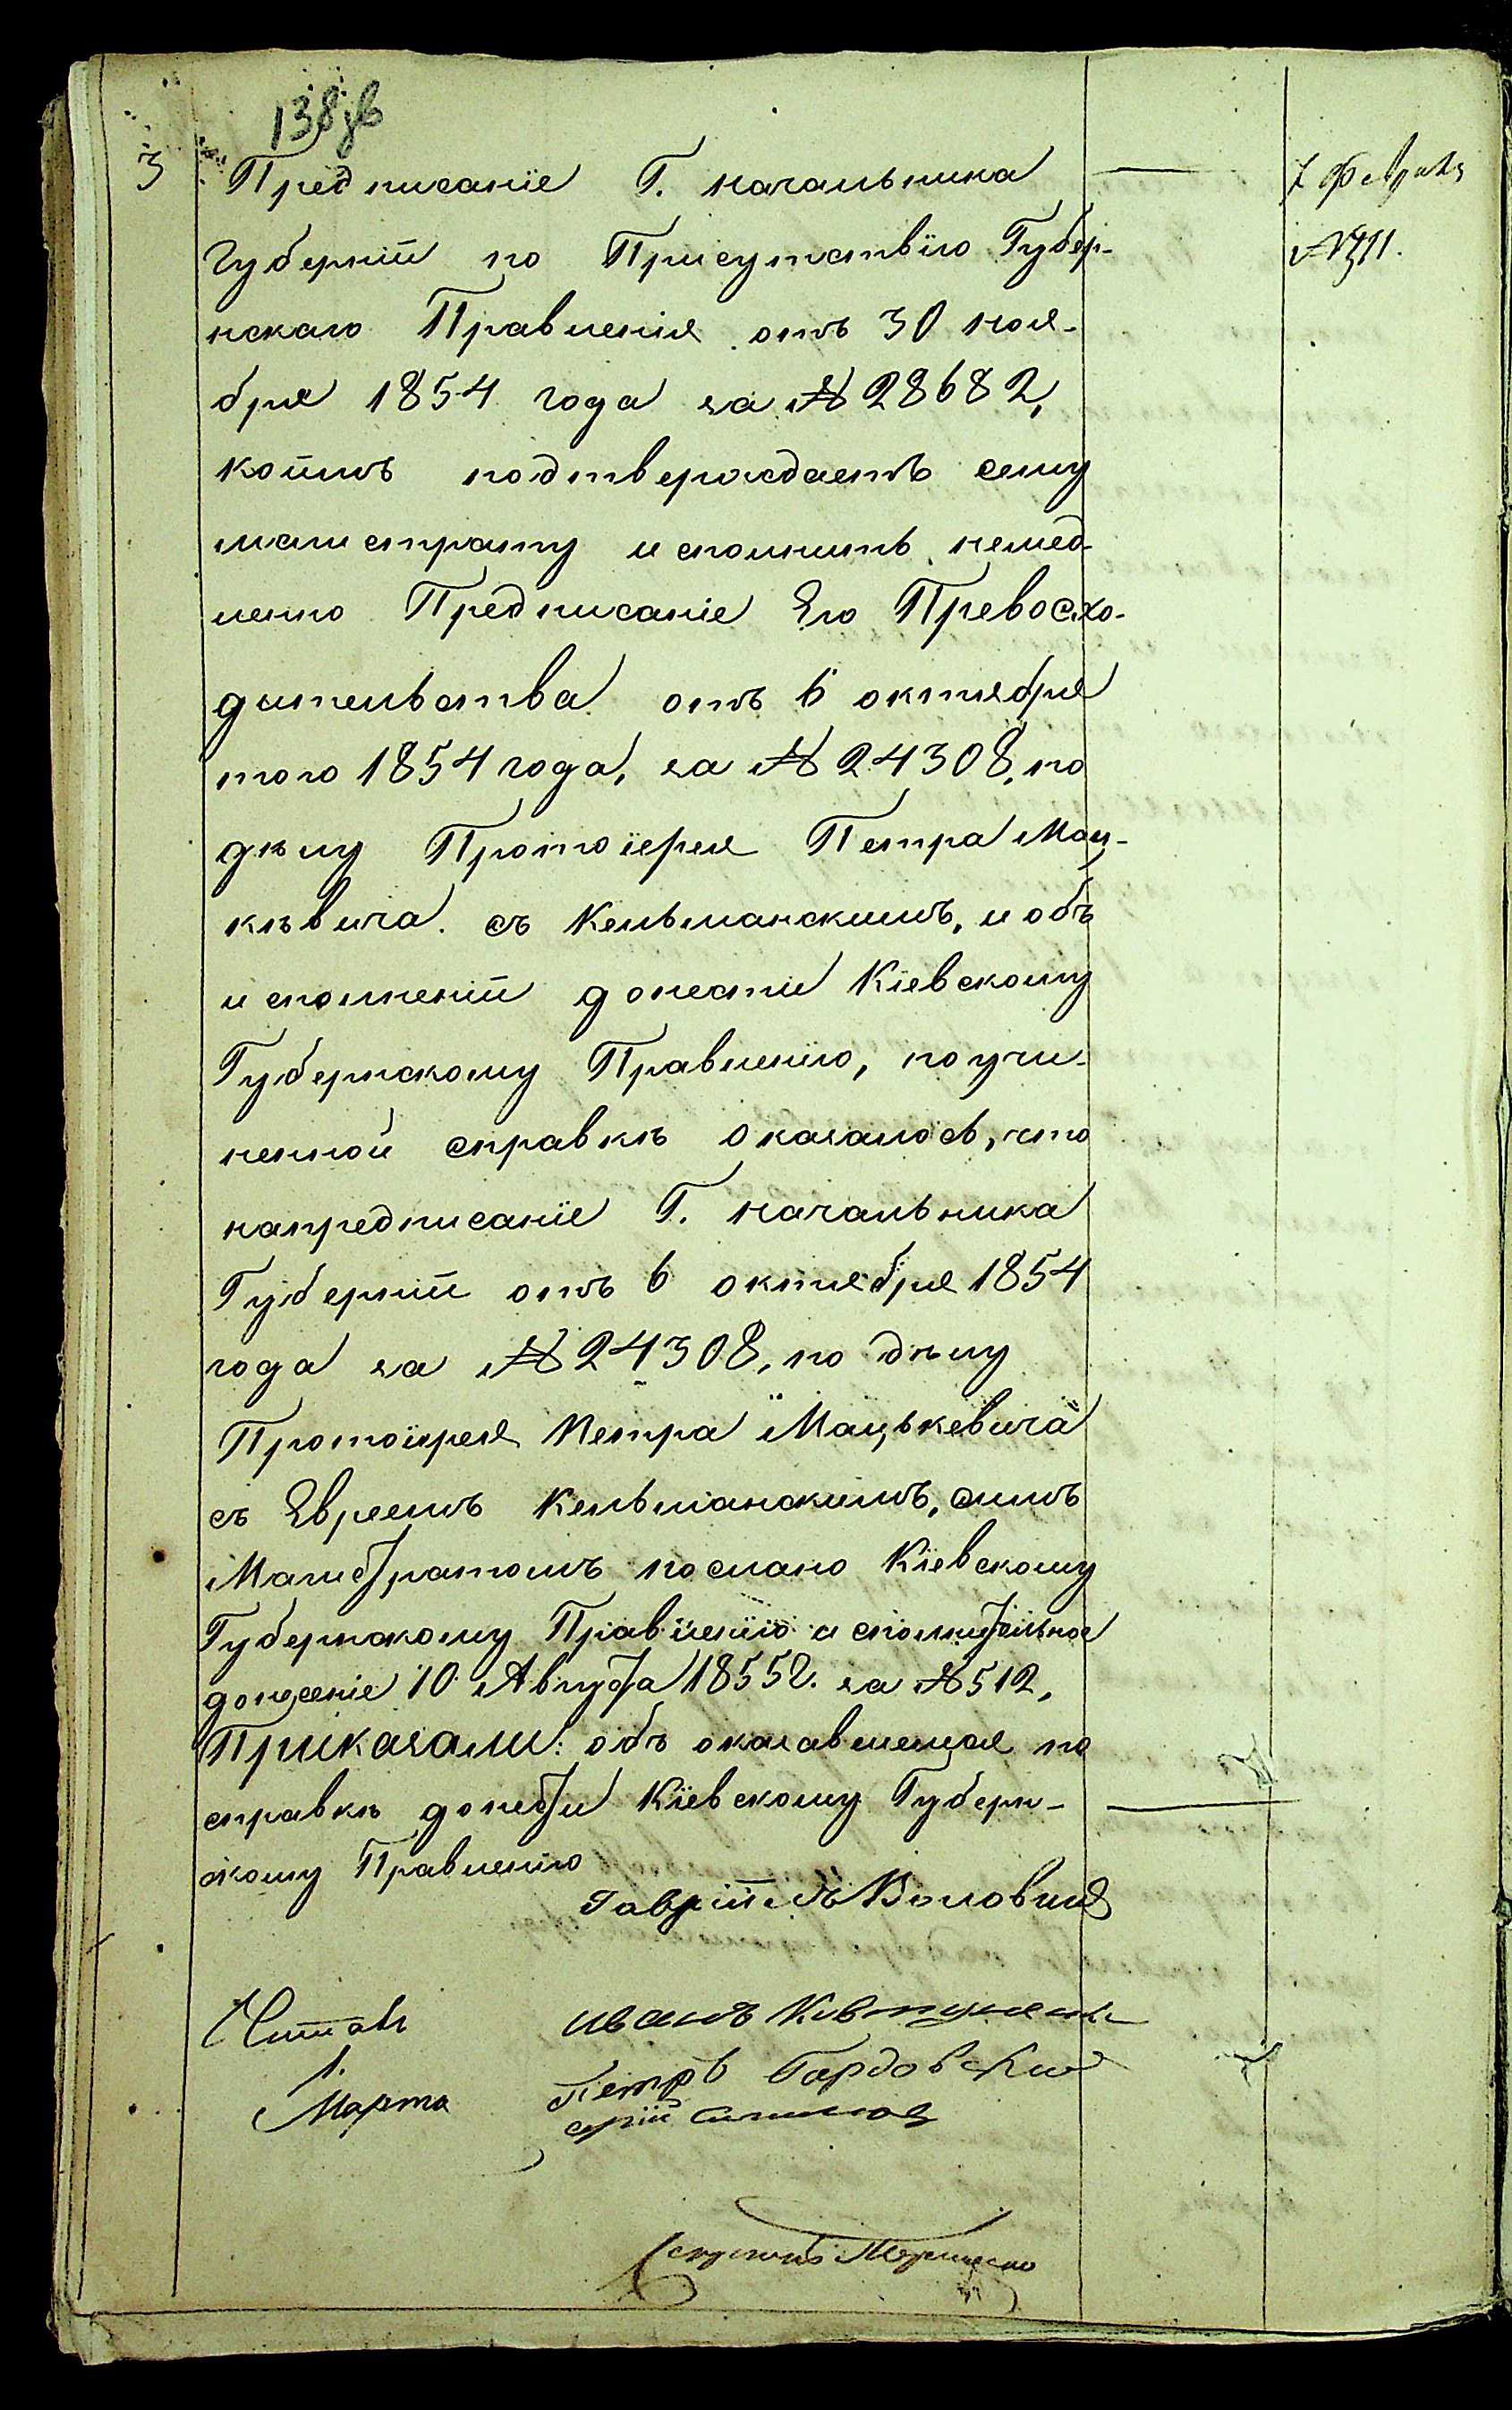 138 зв
3
Предписаніе Г. начальника
7 Февраля
Губерніи по Присутствію Губер-
№ 311.
нскаго Правленія отъ 30 ноя-
бря 1854 года за № 28682,
коимъ подтверждаетъ сему
магистрату исполнить немед-
ленно Предписаніе Его Превосхо-
дительства отъ 6 октября
того 1854 года, за № 24308, по
дѣлу Протоіерея Петра Мац-
кѣвича съ Кельманскимъ, и объ
исполненіи донести Кіевскому
Губернскому Правленію, по учи-
ненной справкѣ оказалось, что
на предписаніе Г. начальника
Губерніи отъ 6 октября 1854
года за № 24308, по дѣлу
Протоіерея Петра Мацькевича
съ Евреемъ Кельманскимъ, симъ
Магистратомъ послано Кіевскому
Губернскому Правленію исполнительное
донесеніе 10 Августа 1855 г. за № 512,
Приказали: объ оказавшемся по
справкѣ донести Кіевскому Губерн-
скому Правленію
Гавріилъ
Читалъ
Иванъ Ковтуненко
1.
Петръ Гордовскій
Марта